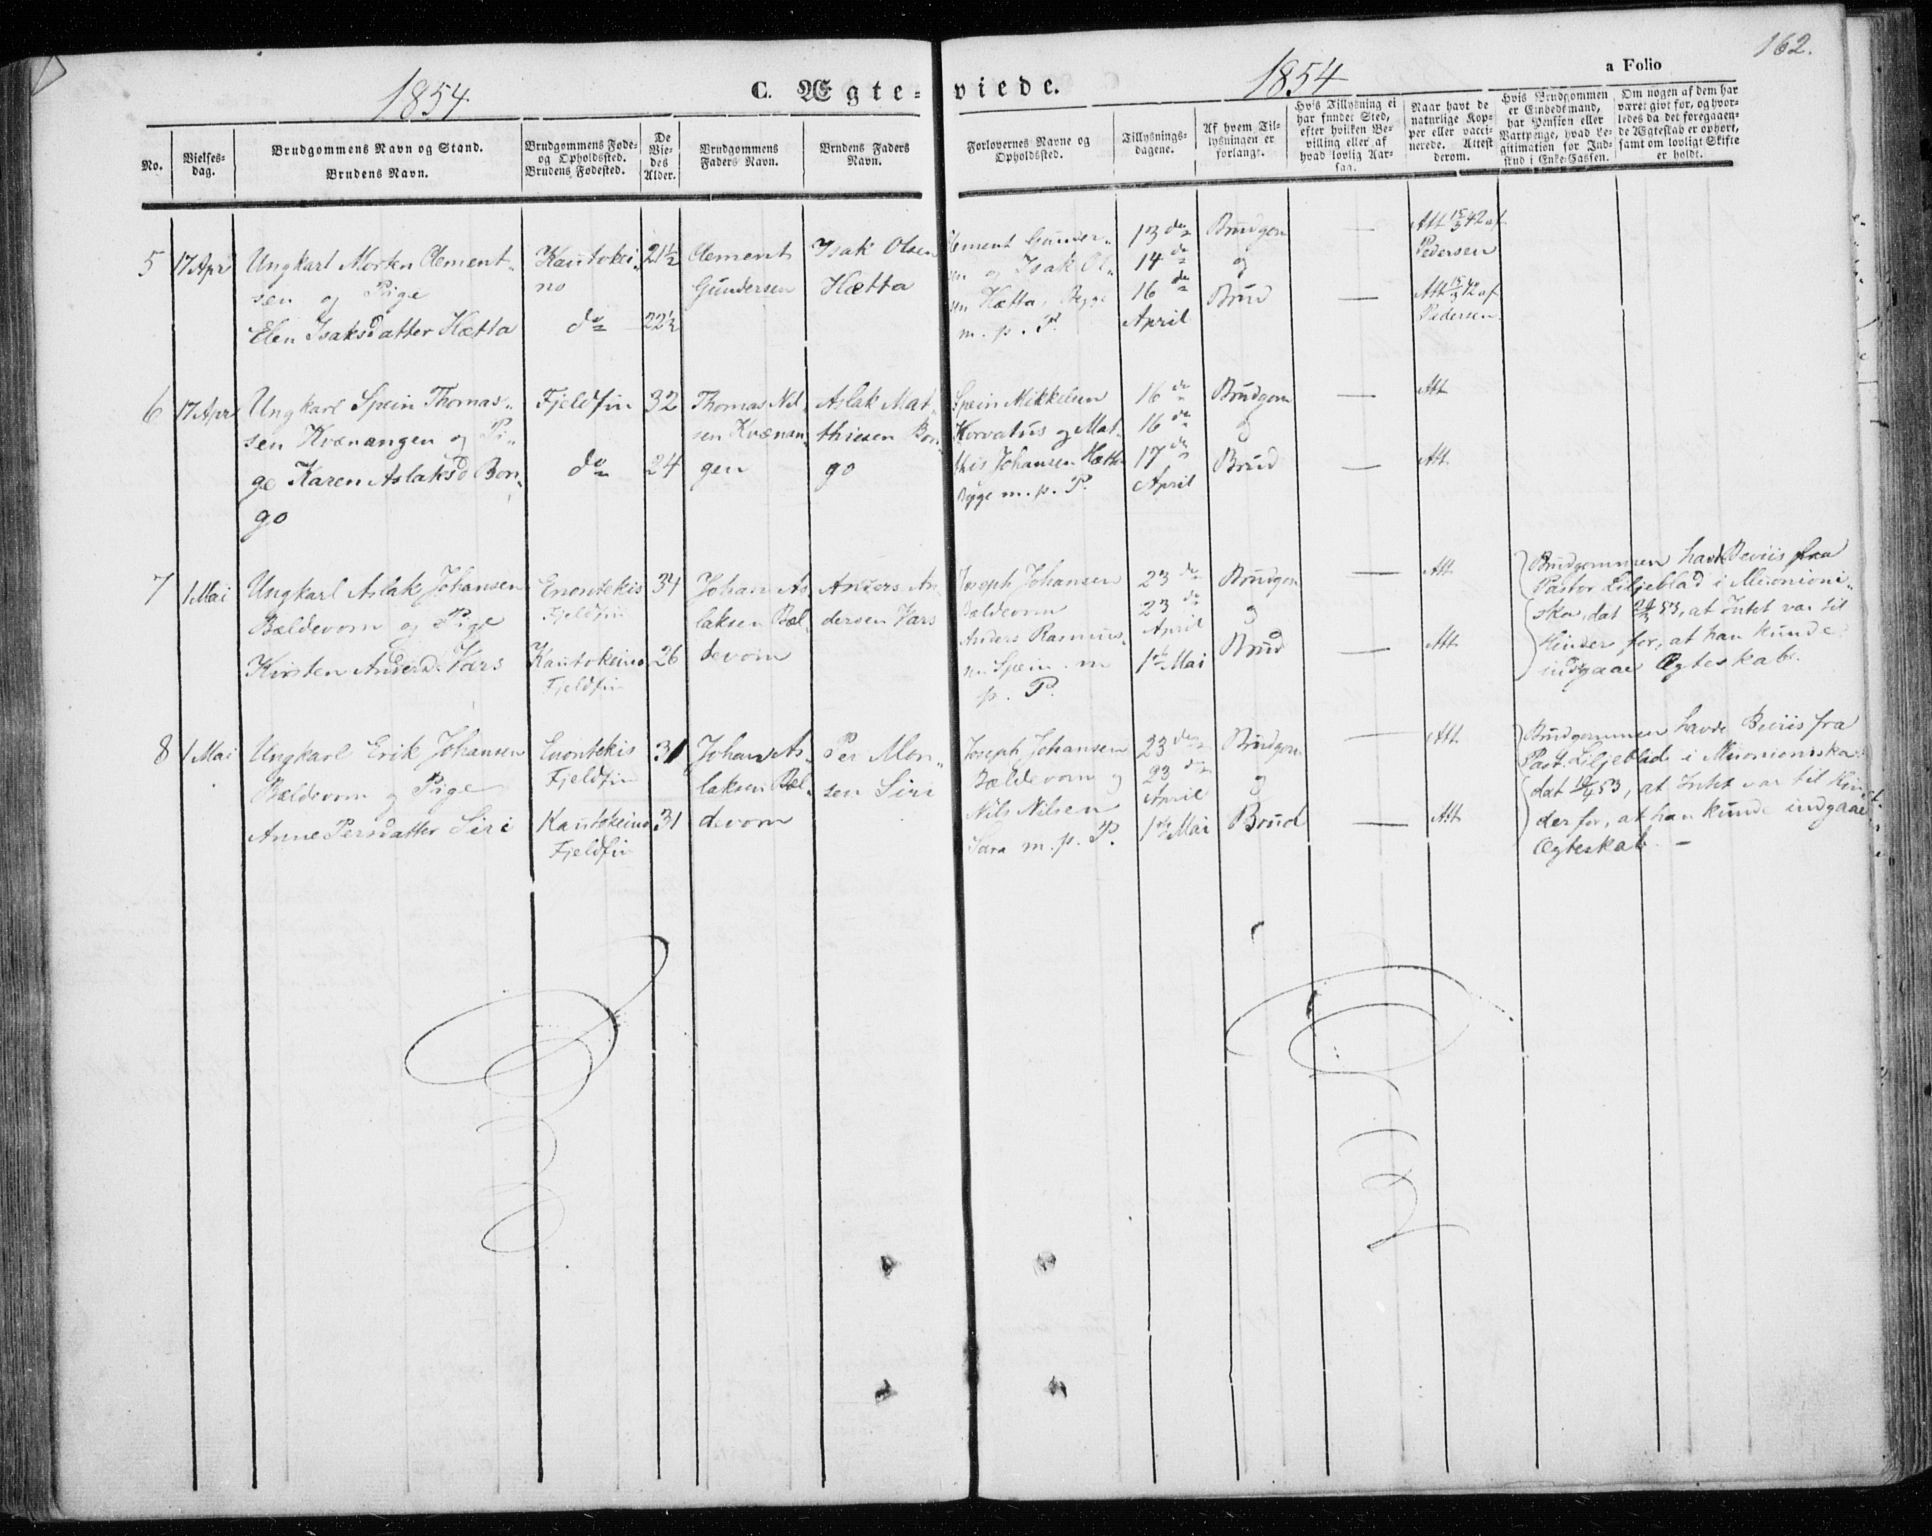 162.
1854
C. Ægte-
viede.
1854
a Folio
No.
Vielses-
dag.
Brudgommens Navn og Stand.
Brudens Navn.
Brudgommens Føde-
og Opholdssted.
Brudens Fødested.
De
Vie-
des
Alder.
Brudgommens
Faders Navn.
Brudens Faders
Navn.
Forlovernes Navne og
Opholdssted.
Tillysnings-
dagene.
Af hvem Til-
lysningen er
forlangt.
Hvis Tillysning ei
har fundet Sted,
efter hvilken Be-
villing eller af
hvad lovlig Aar-
sag.
Naar havt de
naturlige Kop-
per eller vacci-
nerede. Attest
derom.
Hvis Brudgommen
er Embedsmand,
har Pension eller
Vartpenge, hvad Le-
gitimation for Ind-
skud i Enke-Cassen.
Om nogen af dem har
været givt før, og hvor-
ledes da det foregaaen-
de Ægteskab er ophørt,
samt om lovligt Skifte
er holdt.
5
17 Apr
Ungkarl Morten Clement-
sen og Pige
Elen Isaksdatter Hætta
Kautokei-
no
do
21½
22½
Clement
Gundersen
Isak Olsen
Hætta
Clement Gunder-
sen og Isak Ol-
sen Hætta, Begge
m. p. P.
13de
14de
16de
April
Brudgom
og
Brud
—
—
Att 15/3 42 af
Pedersen
Att 15/3 42 af
Pedersen
6
17 Apr
Ungkarl Spein Thomas-
sen Kvænangen og Pi-
ge Karen Aslaksd Bon-
go
Fjeldfin
do
32
24
Thomas Nil-
sen Kvænan-
gen
Aslak Mat-
thiesen Bon-
go
Spein Mikkelsen
Korvatus og Mat-
this Johansen Hætta
Begge m. p. P.
16de
16de
17de
April
Brudgom
og
Brud
—
—
Att
Att
7
1 Mai
Ungkarl Aslak Johansen
Bældevom og Pige
Kirsten Andersd. Vars
Enontekis
Fjeldfin
Kautokeino
Fjeldfin
34
26
Johan As-
laksen Bæl-
devom
Anders An-
dersen Vars
Joseph Johansen
Bældevom
Anders Rasmus-
sen Spein. m
p. P.
23de
23de
April
1ste Mai
Brudgom
og
Brud
—
—
Att
Att
Brudgommen havde Beviis fra
Pastor Liljeblad i Muonioni-
ska, dat 53, at Intet var til
Hinder for, at han kunde
indgaae Ægteskab.
8
1 Mai
Ungkarl Erik Johansen
Bældevom og Pige
Anne Persdatter Siri
Enontekis
Fjeldfin
Kautokeino
Fjeldfin
31
31
Johan As-
laksen Bæl-
devom
Per Mon-
sen Siri
Joseph Johansen
Bældevom og
Nils Nilsen
Sara m. p. P.
23de
23de
April
1ste Mai
Brudgom
og
Brud
—
—
Att
Att
Brudgommen havde Beviis fra
Past. Liljeblad i Muonioniska
dat 53, at Intet var til Hin-
der for, at han kunde indgaae
Ægteskab. —